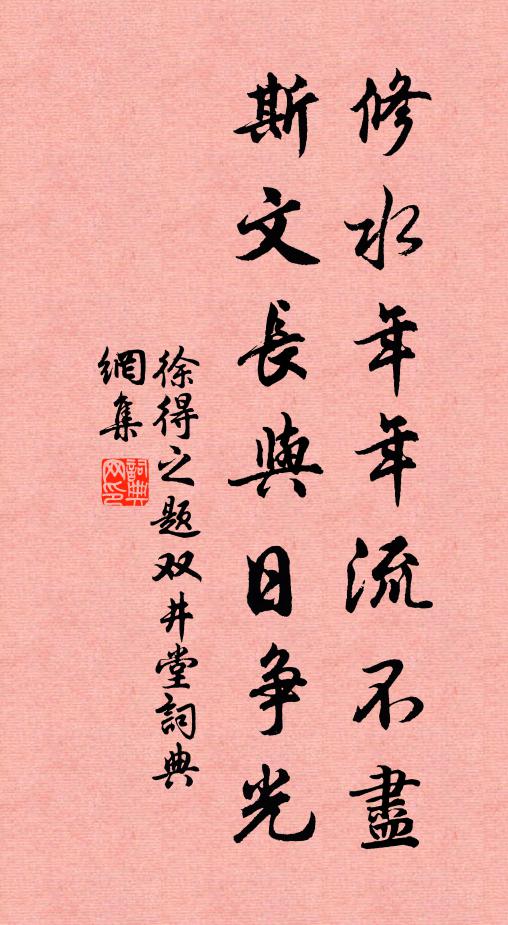 修水年年流不盡
斯文長與日争光
徐得之题双井堂詞典
網集
詞典网印